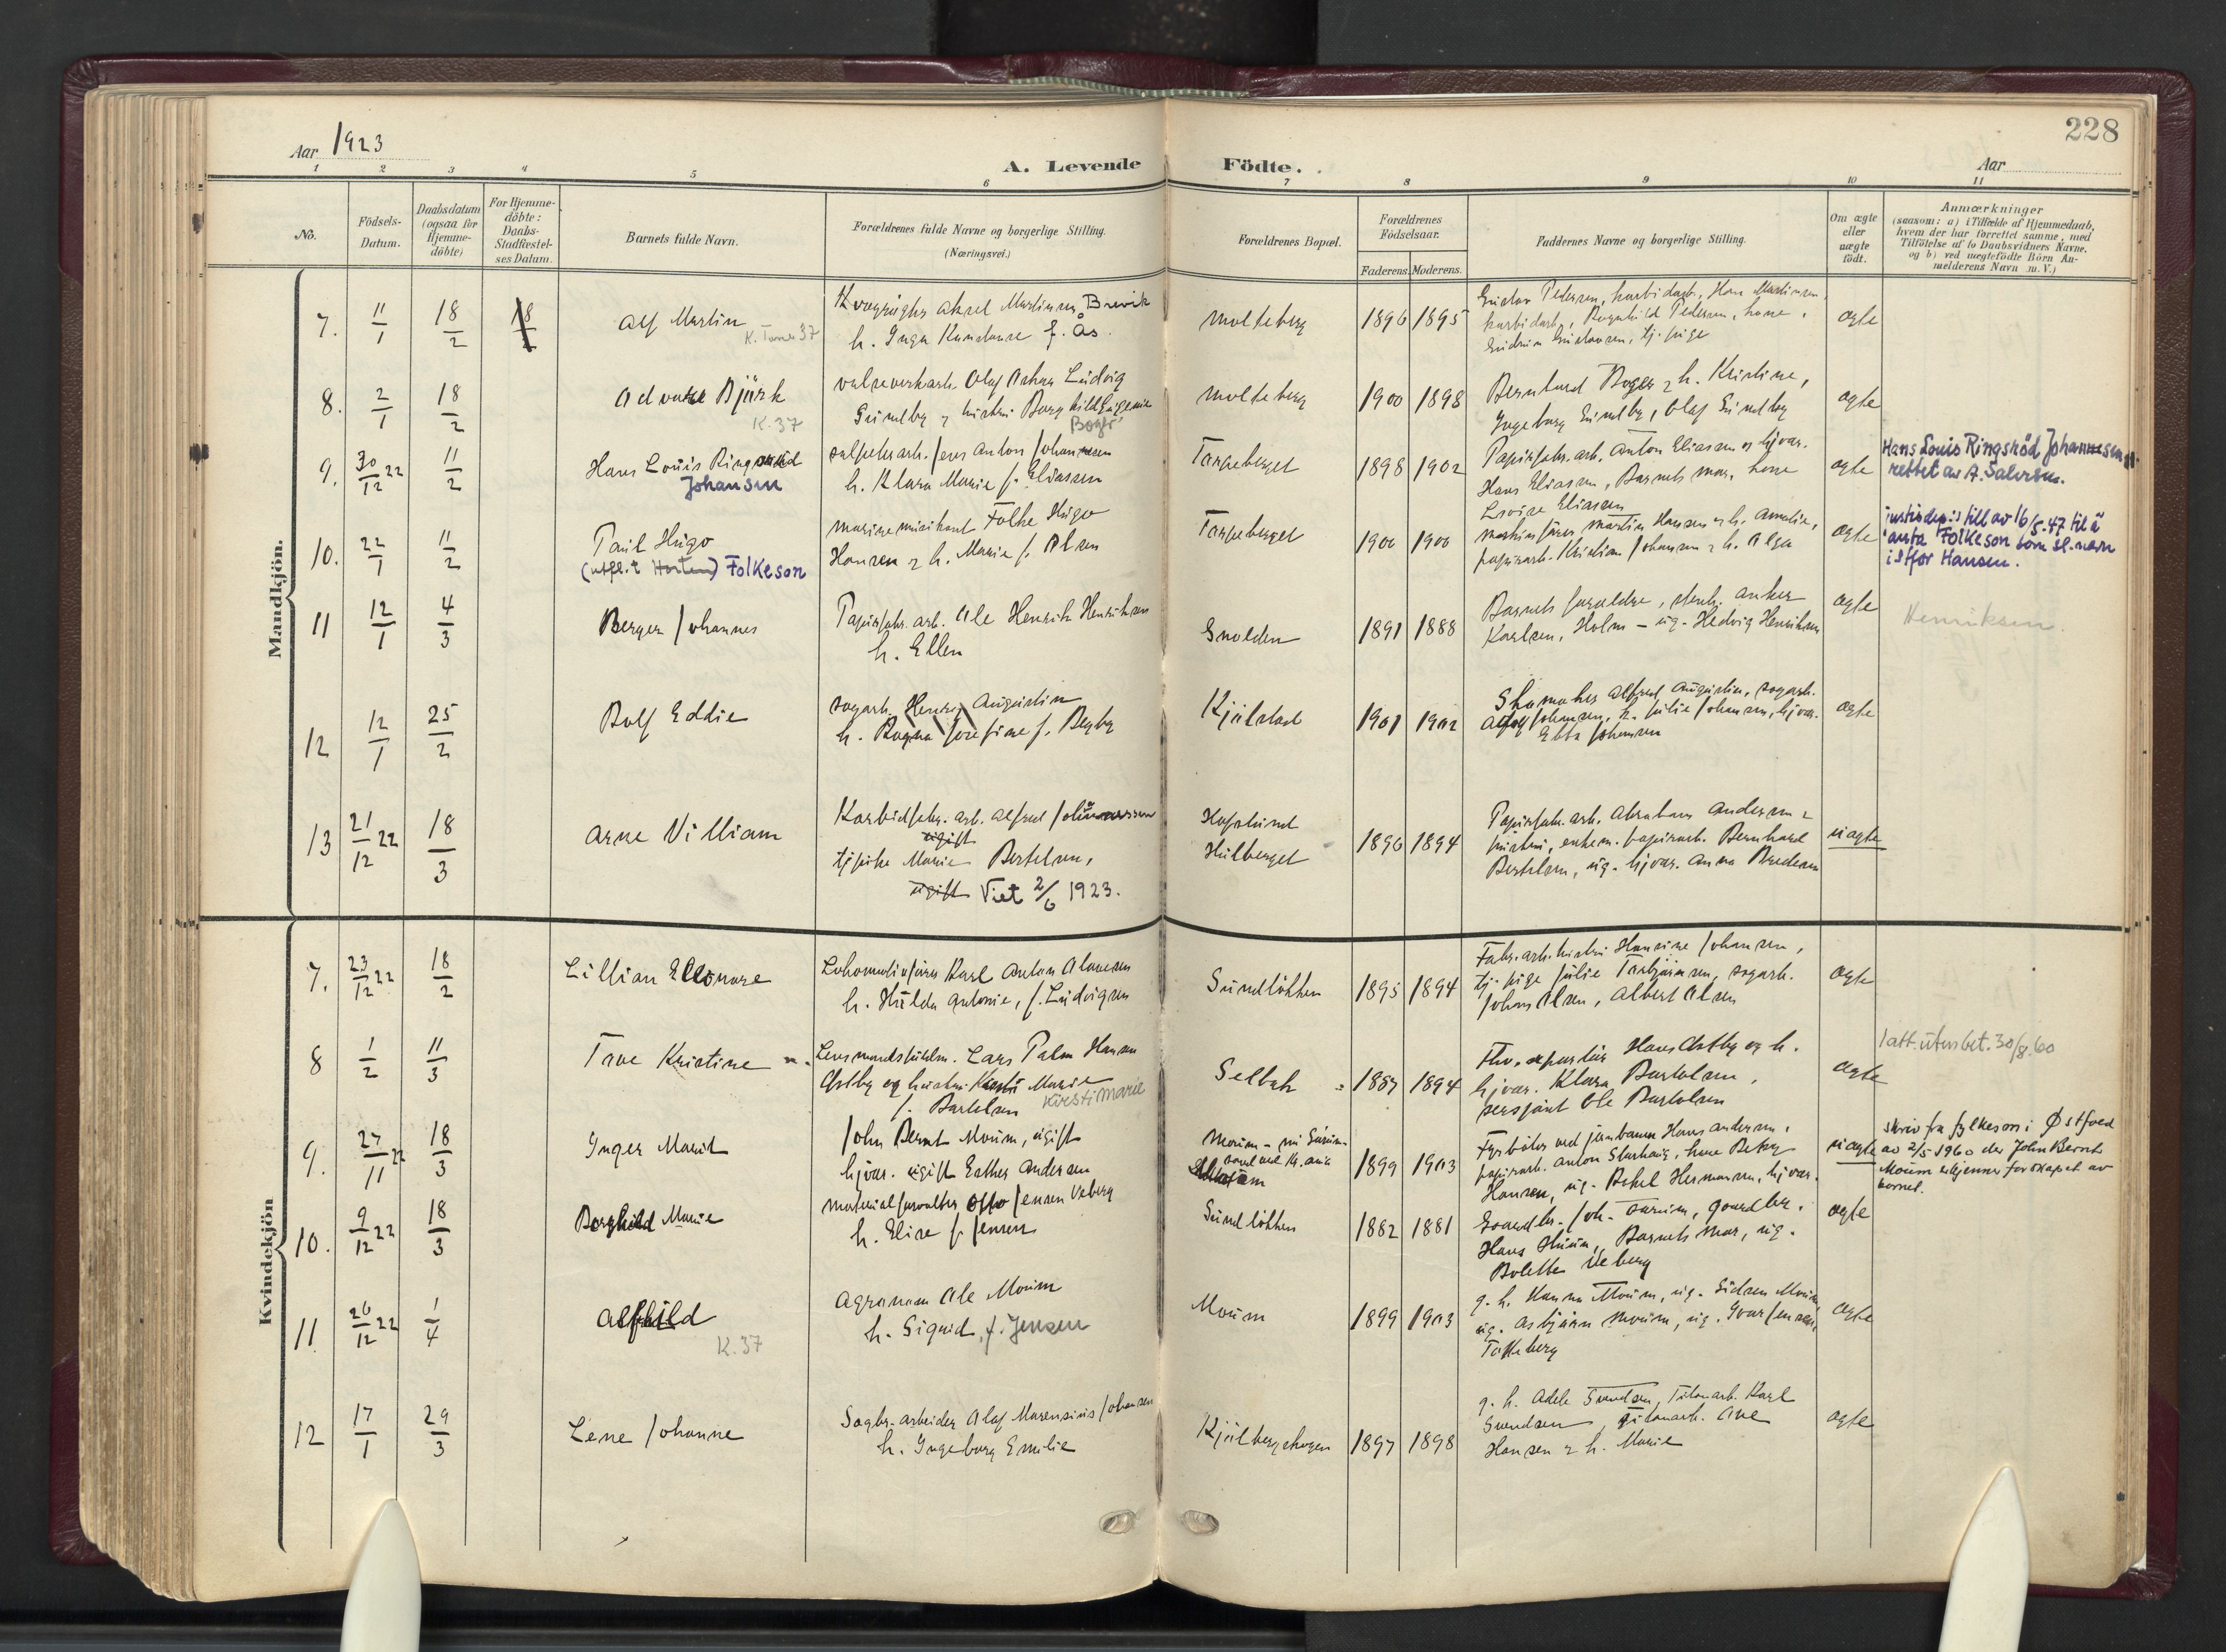 228
Aar 1923
A. Levende Födte.
Aar
1 2 3 4 5 6 7 8 9 10 11
No.
Födsels-
Datum.
Daabsdatum
(ogsaa for
Hjemme-
döbte)
For Hjemme-
döbte:
Daabs-
Stadfæstel-
ses Datum.
Barnets fulde Navn.
Forældrenes fulde Navne og borgerlige Stilling.
(Næringsvei.)
Forældrenes Bopæl.
Forældrenes
Födselsaar.
Faderens. Moderens.
Faddernes Navne og borgerlige Stilling.
Om ægte
eller
uægte
födt.
Anmærkninger
(saasom: a) i Tilfælde af Hjemmedaab,
hvem der har forrettet samme, med
Tilföielse af to Daabsvidners Navne,
og b) ved uægtefödte Börn An-
melderens Navn m. V.)
Mandkjön.
7. 11/1 18/2 18/2
Alf Martin
K. Tune 37
Aksel Martinsen Brevik
h. Inga f. Ås.
Molteberg
1896 1895
Gustav Pedersen, karbidarb., Hans Martinsen,
karbidarb., Ragnhild Pedersen, hone,
Gudrun Gustavsen, tj. pige
ægte
8. 2/1 18/2
Björk
K. 37
valseverkarb. Olaf Oskar Ludvig
Sundby & hustru Borghild Eugenie
Bøgft
Molteberg
1900 1898
Bernhard & h. Kristine,
Ingeborg Sundby, Olaf Sundby
ægte
9. 30/12 22 11/2
Hans Louis Ringsröd
Johansen
salpeterarb. Jens Anton Johannesen
h. Klara Marie f. Eliassen
Torpeberget
1898 1902
Papirfabr. arb. Anton Eliassen og hjvær.
Hans Eliassen, Barnets mor, hone
Lovise Eliassen
ægte
Hans Louis Ringsröd Johannesen
rettet av A. Salvesen.
10. 22/1 11/2
Paul Hugo
(utfl. t. Horten) Folkeson
marinemusikant Folke Hugo
Hansen & h. Marie f. Olsen
Torpeberget
1900 1900
maskinförer Martin Hansen & h. Amalie,
papirarb. Kristian Johansen & h. Olga
ægte
justisdep.s till av 16/5-47 til å
anta Folkeson som sl.navn
istfor Hansen.
11 12/1 4/3
Berger Johannes
Papirfabr. arb. Ole Henrik Henriksen
h. Ellen
Snolden
1891 1888
Barnets forældre, stenh. Anker
Karlsen, Holm - ug. Hedvig Henriksen
ægte
Henriksen
12 12/1 25/2
Rolf Eddie
sagarb. Henry Augustin
h. Ragna Josefine f. Begby
Kjölstad
1901 1902
Skomaker Alfred Augustin, sagarb.
Adolf Johansen, h. Julie Johansen, hjvær.
Ebba Johansen
ægte
13 21/12 22 18/3
Arne Villiam
Karbidfabr. arb. Alfred Johannessen
ugift
Marie Bertelsen,
ugift Viet 2/6 1923.
Hafslund
Hulberget
1896 1894
Papirfabr. arb. Abraham Andersen &
hustru, enkem. papirarb. Bernhard
Bertelsen, ug. hjvær. Anna
uægte
Kvindekjön
7. 23/12 22 18/2
Lillian Ellonore
Lokomotivförer Karl Anton Olaussen
h. Hulda Antonie, f. Ludvigsen
Sundlökken
1895 1894
Fabr. arb. hustru Hansine Johansen,
tj. pige Julie Torbjörnsen, sagarb.
Johan Olsen, Albert Olsen
ægte
8 1/2 11/3
Tove Kristine
Lensmandsfuldm. Lars Palm Hansen
Østby og hustru Kirsti Marie
f. Bartolsen Kirsti Marie
Selbak
1887 1894
Hans Østby og h.
hjvær. Klara Bartolsen,
sersjant Ole Bartolsen
ægte
1 att. utenbet. 30/8.60
9. 27/11 22 18/3
Inger Marit
John Bernt Moum, ugift
hjvær. ugift Esther Andersen
Moum
1899 1903
Fyrböter ved jernbanen Hans Andersen,
papirarb. Anton
Hansen, ug. Hermansen, hjvær.
uægte
skriv fra fylkesm. i Østfold
av 2/5 1960 der John Bernt
Moum erkjenner farskapet av
barnet.
10. 9/12 22 18/3
Borghild Marie
materialforvalter Otto Jensen Veberg
h. Elise f. Jensen
Sundlökken
1882 1881
Gaardbr. Joh. gaardbr.
Hans Huum, Barnets mor, ug.
Bolette Veberg
ægte
11. 26/12 22 1/4
Alfhild
K. 37
Agronom Ole Moum
h. Sigrid, f. Jensen
Moum
1899 1903
g. h. Hanna Moum, ug. Moum,
ug. Asbjörn Moum, ug. Ivar Jensen,
Torkeberg
ægte
12 17/1 29/3
Lene Johanne
Sagbr. arbeider Olaf Marensius Johansen
h. Ingeborg Emilie
Kjölbergskogen
1897 1898
g. h. Adele Svendsen, Titanarb. Karl
Svendsen, titanarb. Ove
Hansen & h. Marie
ægte